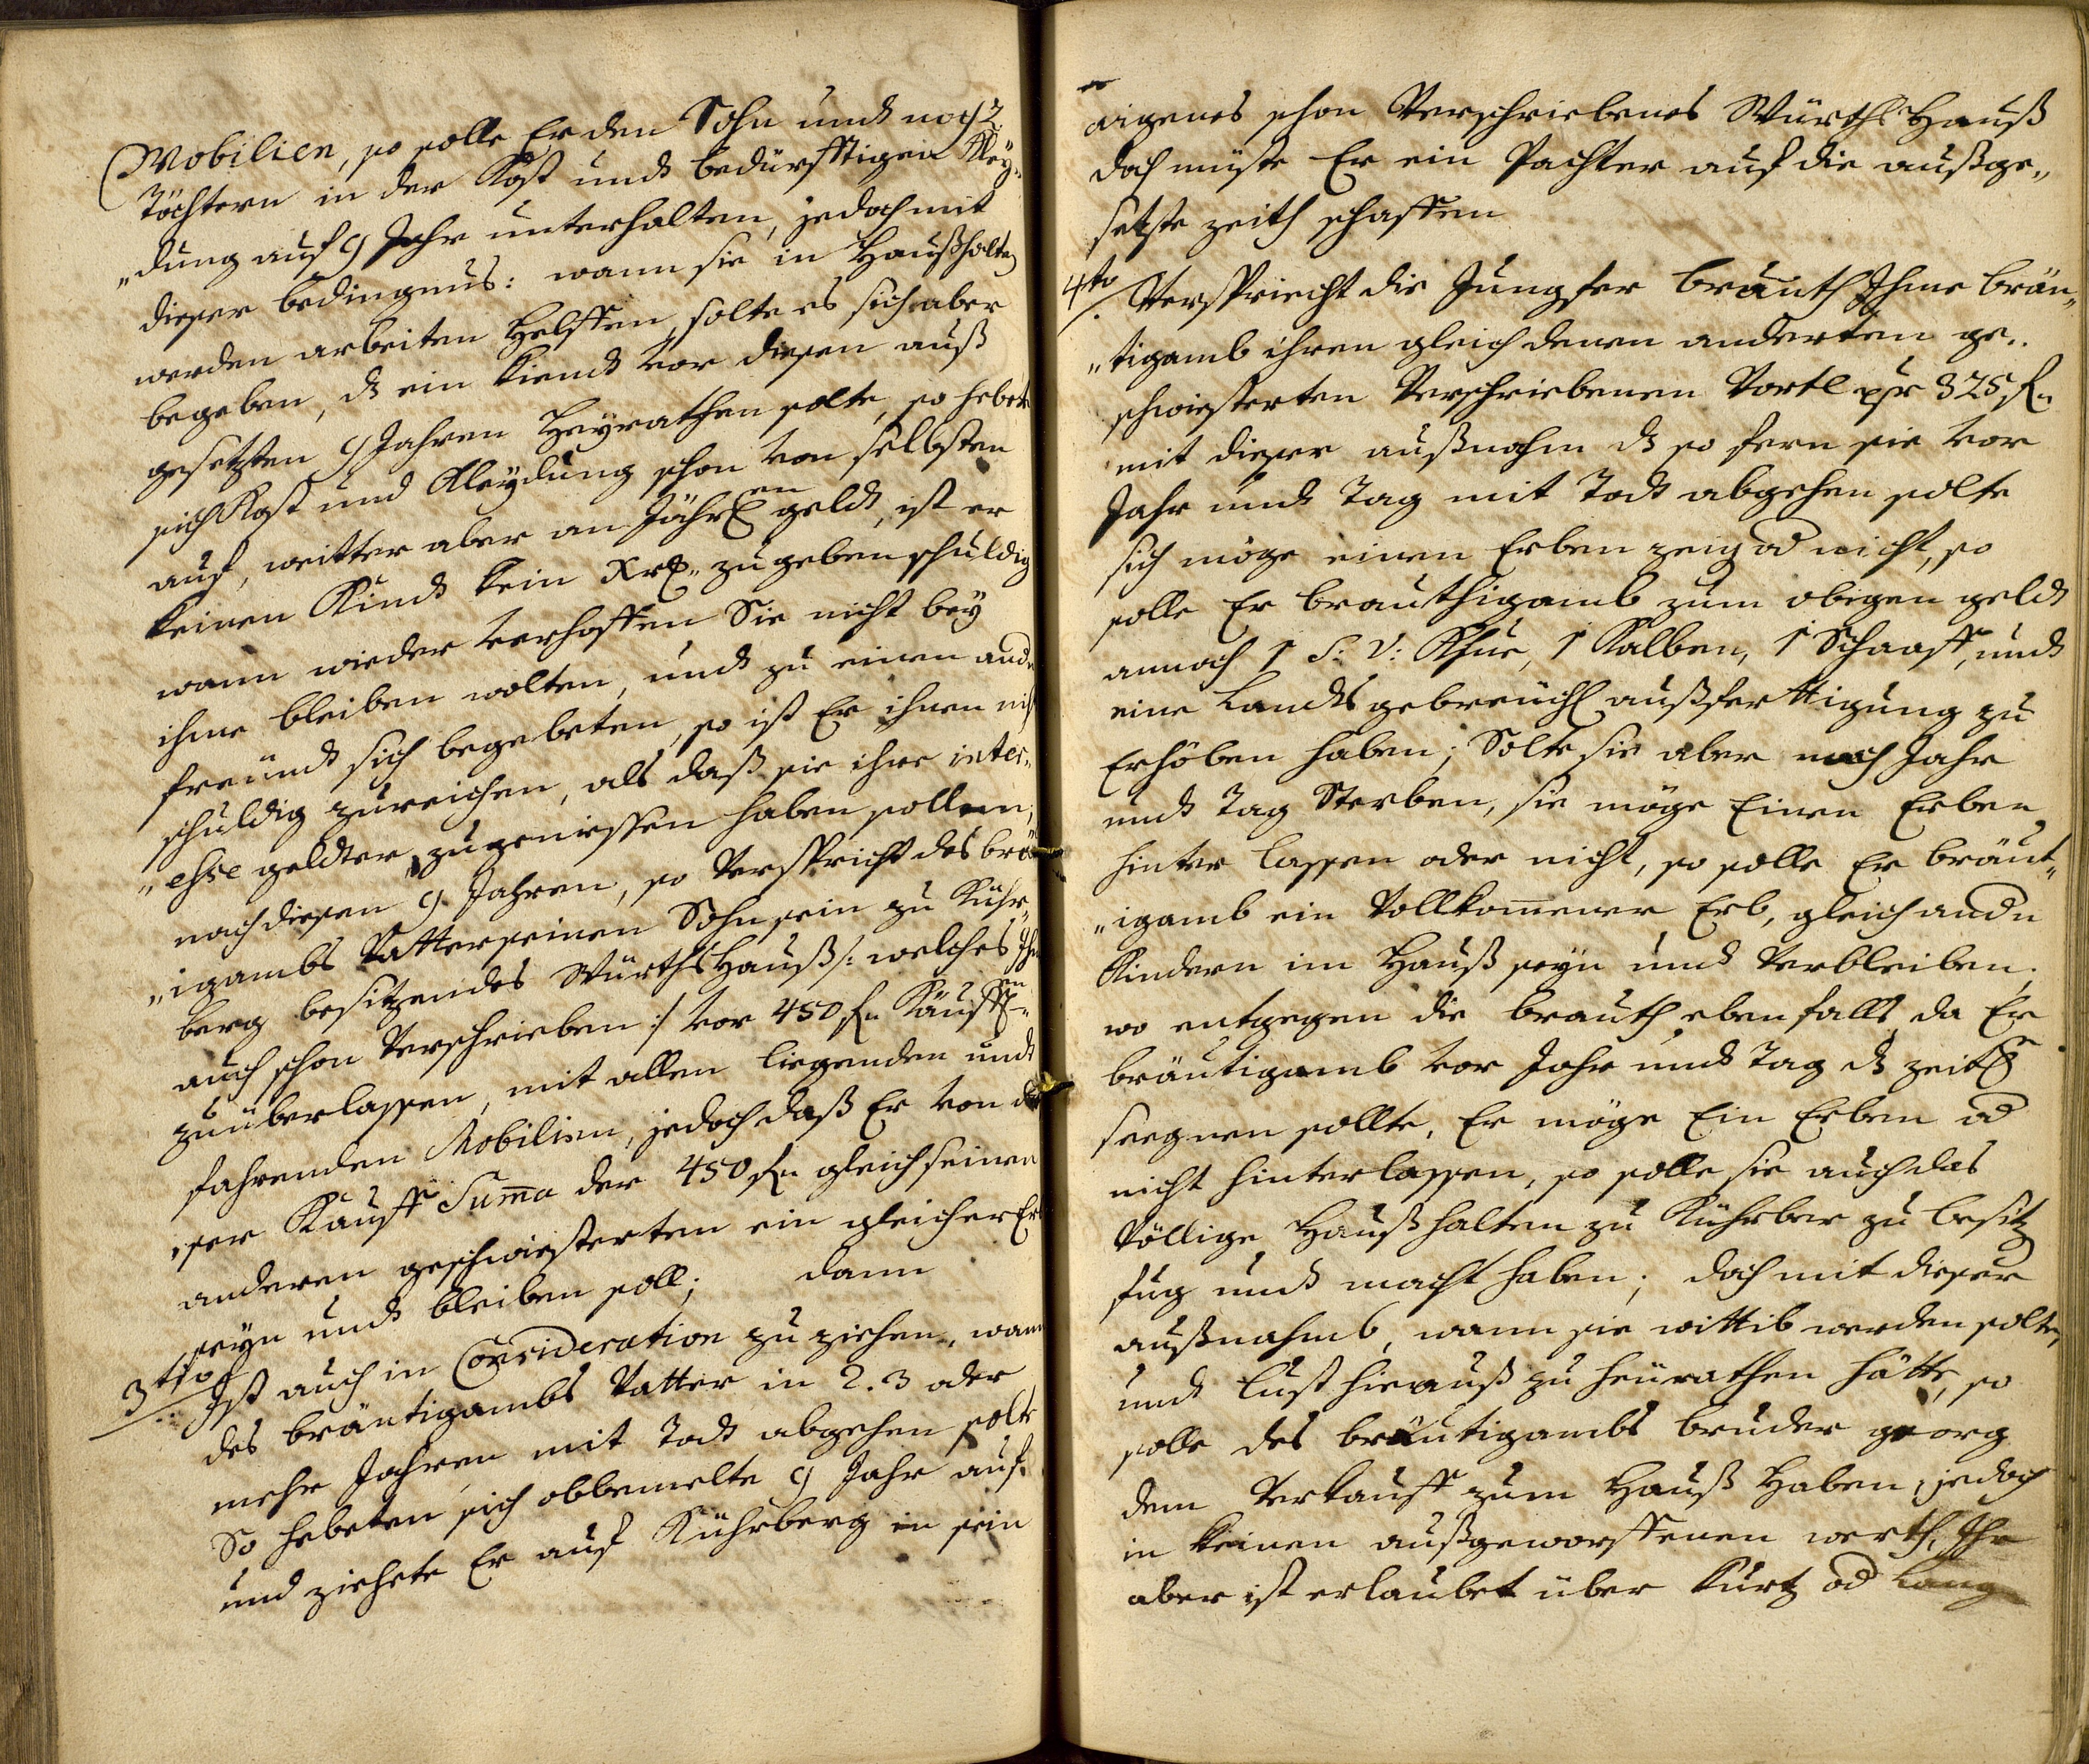 Mobilien, so solle Er den Sohn undt noch 2
Töchtern in der Kost undt bedürfftigen Kley„
„dung auf 9 Jahr unterhalten, jedoch mit
dieser bedingnus: wann sie in Haußhalten
werden arbeiten Helffen, solte es sich aber
begeben, d ein Kiendt vor diesen auß
gesetzten 9 Jahren Heyrathen solte, so hebete
sich Kost und Kleydung schon von selbsten
auf, weitter aber an Jähren geldt, ist er
keinen Kindt kein Xr„ zu geben schuldig
wann wieder verhoffen Sie nicht bey
ihme bleiben wolten, undt zu einen andn
freundt sich begebeten, so ist Er ihnen nichts
schuldig zureichen, als daß sie ihre inter„
„ehse geldter zugeniessen haben sollen;
nach diesen 9 Jahren, so Verspricht des bräu
„igambs Vatter seinen Sohn sein zu Kühr„
berg besitzendes Würths Hauß /: welches Ihm
auch schon Verschrieben :/ vor 450 fl. Käuffen„
zu überlassen, mit allen liegenden undt
fahrenden Mobilien, jedoch daß Er von die
„ser Kauff Suma der 450 fl. gleich seinen
anderen geschwiesterten ein gleicher Erb
seyn undt bleiben soll; dann
3tio Ist auch in Consideration zu ziehen, wann
des bräutigambs Vatter in 2. 3 oder
mehr Jahren mit Todt abgehen solte
So hebeten sich obbemelte 9 Jahr auf,
und ziehete Er auf Kührberg in sein
aigenes schon Verschriebenes Würths Hauß
doch müste Er ein Pachter auf die außge„
setzte zeith schaffen
4to Verspriecht die Jungfer brauth Ihme bräu„
„tigamb ihren gleich denen anderten ge„
schwiesterten Verschriebenen Vortl pr 325 fl.
mit dieser außnahm d so fern sie vor
Jahr undt Tag mit Todt abgehen solte
sich möge einen Erben zeig od nicht, so
solle Er brauthigamb zum obigen geldt
annoch 1 S: V: Khue, 1 Kalben, 1 Schaaff, undt
eine Landts gebreuchl außfertigung zu
Erhöben haben; Solte sie aber nach Jahr
undt Tag Sterben, sie möge Einen Erben
hinter lassen oder nicht, so solle Er bräut„
„igamb ein Vollkomener Erb, gleich andn
Kindern im Hauß seyn und Verbleiben,
wo entgegen die brauth ebenfalls da Er
bräutigamb vor Jahr undt Tag d zeitl
seegnen sollte, Er möge Ein Erben od
nicht hinterlassen, so solle sie auch das
Völlige Haußhalten zu Kührber zu besitz
fug undt macht haben; doch mit dieser
außnahmb, wann sie wittib werden solte,
undt lust hierauß zu heurathen hätte, so
solle des bräutigambs bruder georg
dem Verkauff zum Hauß Haben, jedoch
in keinen außgeworffenen werth, Ihr
aber ist erlaubet über kurtz od lang